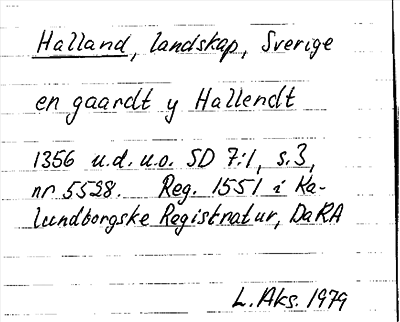 Halland, landskap, Sverige
en gaardt y Hallendt
1356 u.d. u.o. SD 7:1, s.3,
nr 5528. Reg. 1551 i Ka-
lundborgske Registratur, DaRA
L. Aks. 1979